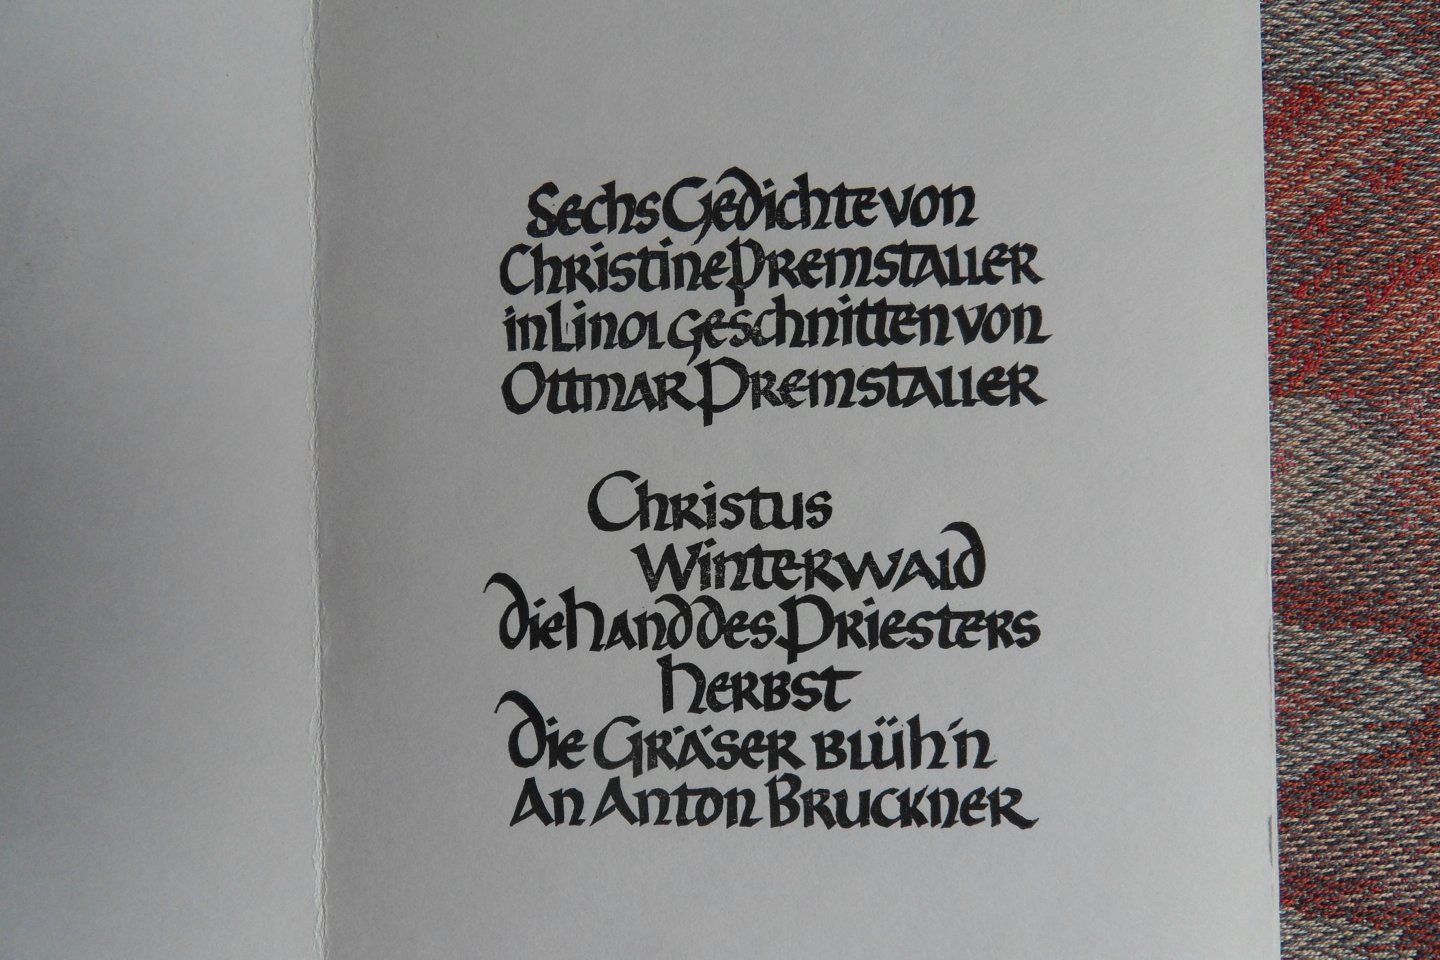 Sechs Gedichte von
Christine Premstaller
in Linol geschnitten von
Ottmar Premstaller
Christus
Winterwald
die Hand des Priesters
Herbst
die Gräser blüh'n
An Anton Bruckner